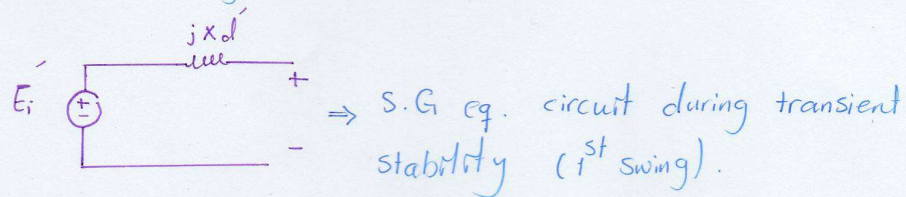 jxd'
Ei' + + ⇒ S.G eq. circuit during transient
- - stability (1st swing).